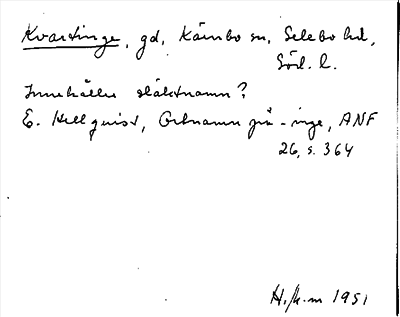 Kvartinge, gd, Kärnbo sn, Selebo hd,
Söd. l.
Innehåller släktnamn?
E. Hellquist, Ortnamn på -inge, ANF
26, s. 364
H. 1951